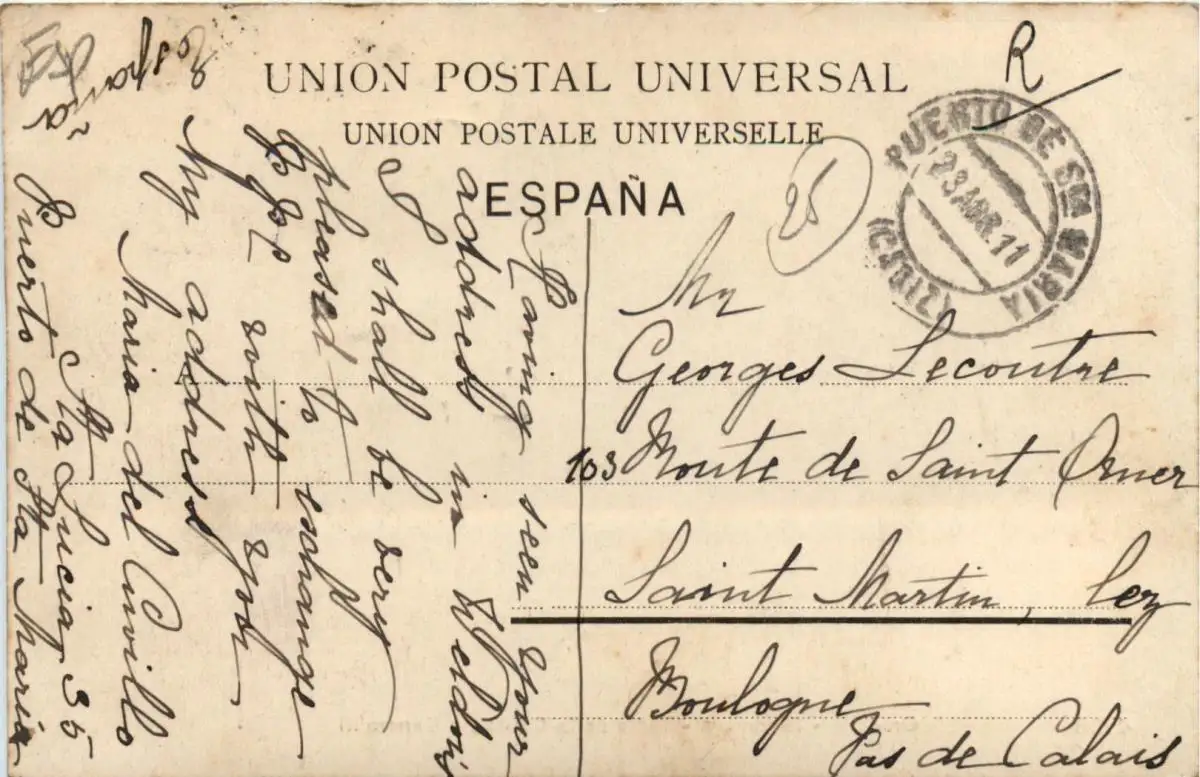 UNION POSTAL UNIVERSAL
UNION POSTALE UNIVERSELLE
ESPAÑA
R
25
PUERTO DE Sta MARIA
23 ABR. 11
(CADIZ)
Having seen your
address in Weldon's
I shall be very
pleased to exchange
P.P.C. with you
My address
Maria del Cuvillo
Sta Lucia, 35
Puerto de Sta Maria
España
Mr
Georges Lecoutre
103 Route de Saint Omer
Saint Martin, lez
Boulogne
Pas de Calais